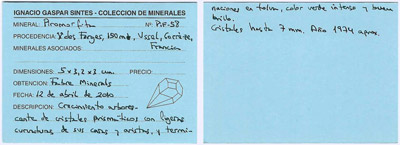 IGNACIO GASPAR SINTES - COLECCION DE MINERALES
MINERAL: Piromorfita Nº: PiF-58
PROCEDENCIA: Farges, Ussel, Corrèze,
Francia
MINERALES ASOCIADOS:
DIMENSIONES: 5 x 3,2 x 3 cm
OBTENCION: Fabre Minerals
FECHA: 12 de abril de 2010
DESCRIPCION: Crecimiento arbores-
cente de cristales prismáticos con ligeras
curvaturas de sus caras y aristas, y termi-
naciones en tolva, color verde intenso y buen
brillo.
Cristales hasta 7 mm. Año 1974 aprox.